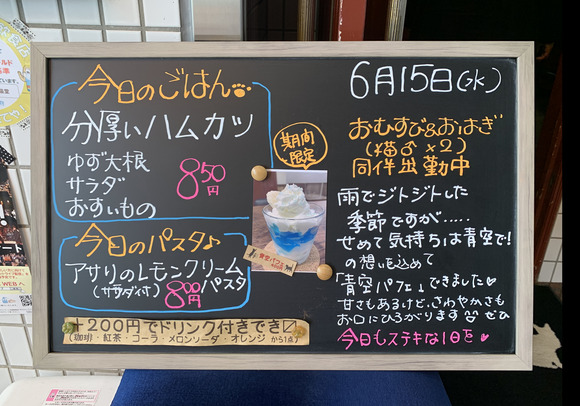 今日のごはん
分厚いハムカツ
ゆず大根
サラダ
おすいもの
850円
今日のパスタ♪
アサリのレモンクリームパスタ
(サラダ付)
800円
+200円でドリンク付きでき〼
(珈琲・紅茶・コーラ・メロンソーダ・オレンジ から1点)
期間
限定
青空パフェ
6月15日(水)
おむすび&おはぎ
(猫♂×2)
同伴出勤中
雨でジトジトした
季節ですが.....
せめて気持ちは青空で!
の想いを込めて
「青空パフェ」できました♡
甘さもあるけど、さわやかさも
お口にひろがります ぜひ
今日もステキな1日を♥